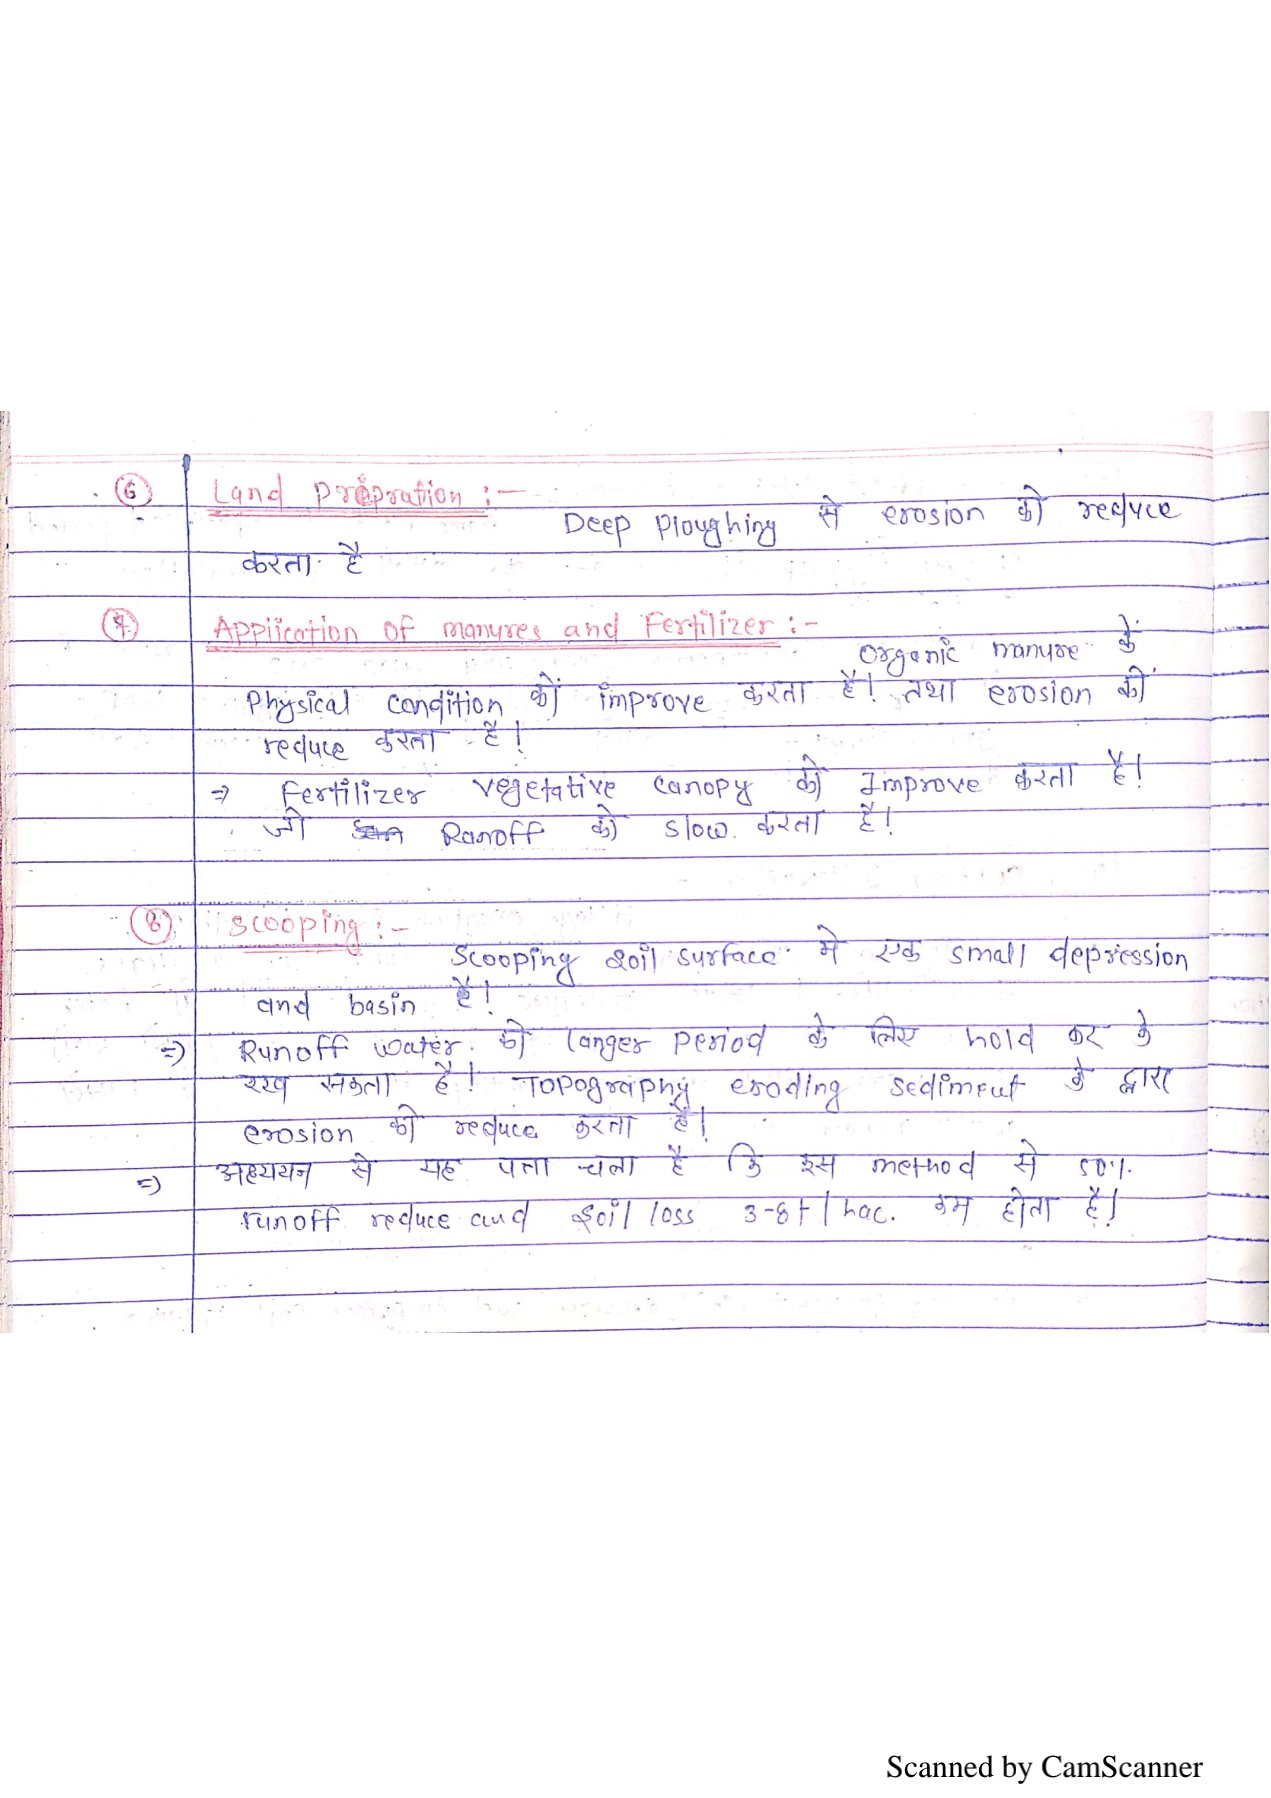 6 Land Prepration :-
Deep Ploughing से erosion को reduce
करता है
7 Application of manures and Fertilizer :-
Organic manure के
Physical Condition को improve करता है। तथा erosion को
reduce करता है।
=> Fertilizer vegetative canopy को Improve करता है।
जो Runoff को slow करता है।
8 Scooping :-
Scooping soil surface में एक small depression
and basin है।
=> Runoff water को langer Period के लिए hold कर के
रख सकता है। Topography eroding sediment के द्वारा
erosion को reduce करता है।
=> अध्ययन से यह पता चला है कि इस method से 50%
runoff reduce and soil loss 3-8t/hac. कम होता है।
Scanned by CamScanner